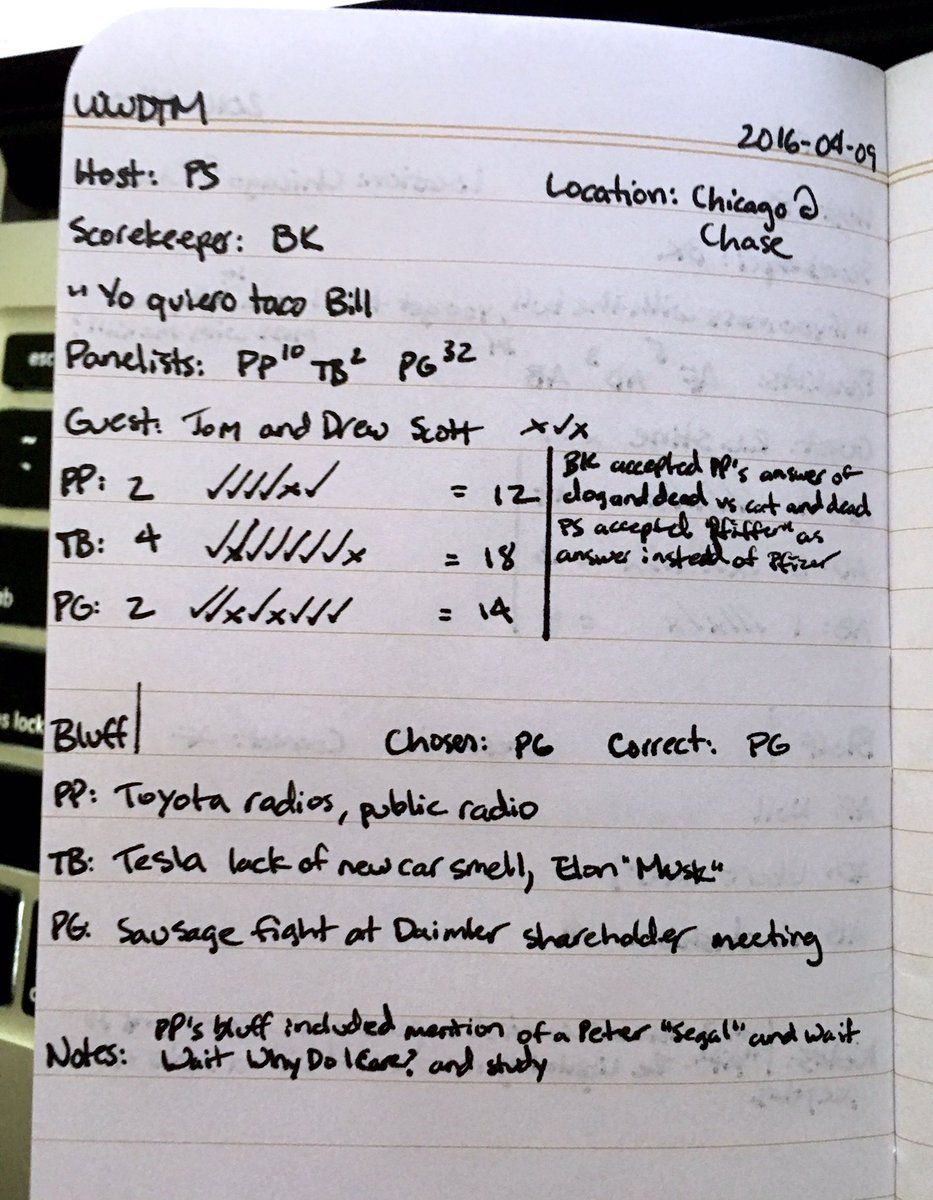 WWDTM
2016-04-09
Host: PS
Location: Chicago @
Chase
Scorekeeper: BK
" Yo quiero taco Bill
Panelists: PP¹⁰ TB² PG³²
Guest: Tom and Drew Scott x✓x
PP: 2 ✓✓✓✓x✓ = 12
TB: 4 ✓x✓✓✓✓✓x = 18
PG: 2 ✓✓x✓x✓✓✓ = 14
BK accepted PP's answer of
dog and dead vs cat and dead
PS accepted "Pfiffer" as
answer instead of Pfizer
Bluff
Chosen: PG Correct: PG
PP: Toyota radios, public radio
TB: Tesla lack of new car smell, Elon "Musk"
PG: Sausage fight at Daimler shareholder meeting
Notes: PP's bluff included mention of a Peter "Segal" and Wait
Wait Why Do I Care? and study
esc